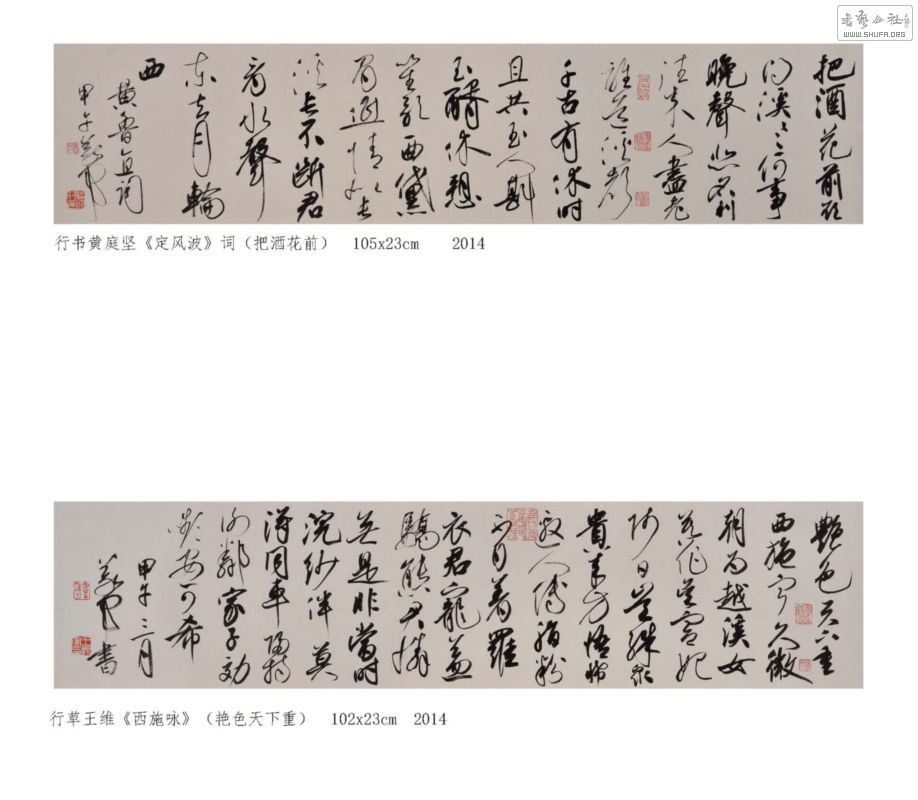 书艺公社
WWW.SHUFA.ORG
把酒花前欲
问溪〻何事
晚聲悲名利
往来人盡老
誰道溪聲
千古有休时
且共玉人斟
玉醑休想
笙歌一西黛
眉低情似长
溪长不断君
看水聲
东去月輪
西
黄魯直詞
甲午
行书黄庭坚《定风波》词（把酒花前） 105x23cm 2014
艷色天下重
西施寧久微
朝为越溪女
暮作吴宫妃
賤日豈殊衆
貴来方悟稀
邀人傅脂粉
不自着羅
衣君寵益
驕態君憐
無是非當时
浣纱伴莫
得同車歸持
谢鄰家子効
颦安可希
甲午三月
書
行草王维《西施咏》（艳色天下重） 102x23cm 2014